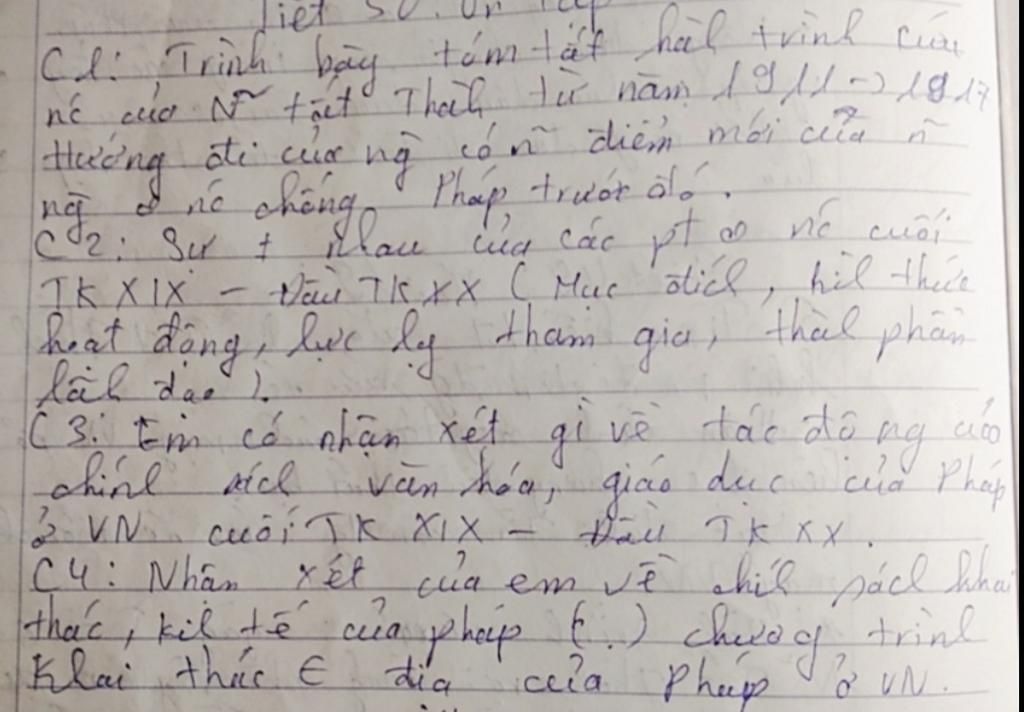 Tiết 50. Ôn tập
C1: Trình bày tóm tắt hàh trình cứu
nc của Ng̃ tất Thàh từ năm 1911 -> 1917
Hướng đi của ng có n̄ điểm mới của n̄
ng nc chống Pháp trước đó.
C2: Sự ≠ nhau của các pt nc cuối
TK XIX - Đầu TK XX ( Mục đích, hìh thức
hoạt động, lực lg tham gia, thàh phần
lãh đạo ).
C3: Em có nhận xét gì về tác động của
chính sách văn hóa, giáo dục của Pháp
ở VN cuối TK XIX - Đầu TK XX.
C4: Nhận xét của em về chíh sách khai
thác, kih tế của pháp (..) chương trình
Khai thác ∈ địa của Pháp ở VN.